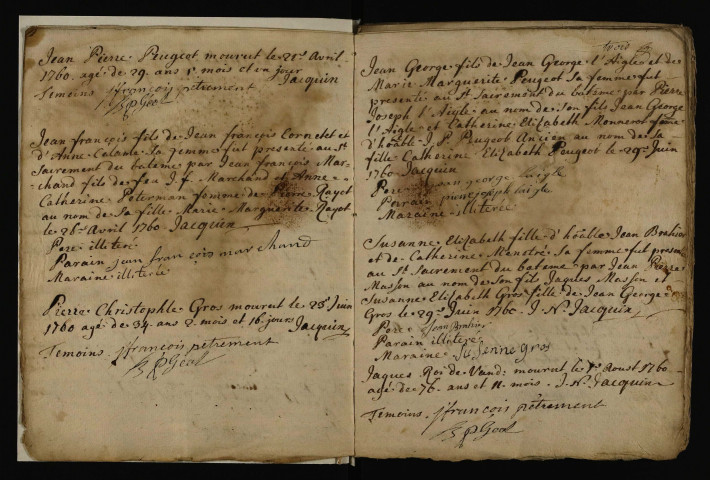 Jean Pierre Peugeot mourut le 21e Avril
1760. agé de 29. ans 1. mois et un jour
Jacquin
Temoins. jfrancois pétrement
Jean françois fils de Jean françois Cornetet et
d'Anne Catarie sa femme fut presenté au St
Sacrement du bateme par Jean françois Mar-
chand fils de feu J. f. Marchand et Anne
Catherine Peterman femme de Pierre Rayot
au nom de sa fille Marie Marguerite Rayot
le 26e Avril 1760 Jacquin
Pere illiteré
Parain jean francois marchand
Maraine illiterée
Pierre Christophle Gros mourut le 25e Juin
1760 agé de 34. ans 2. mois et 16. jours Jacquin
Temoins jfrancois pétrement
Jean George fils de Jean George l'Aigle et de
Marie Marguerite Peugeot sa femme fut
presenté au St Sacrement du bateme par Pierre
Joseph l'Aigle au nom de son fils Jean George
l'Aigle et Catherine Elizabeth Monnerot femme
d'hôble J. P. Peugeot Ancien au nom de sa
fille Catherine Elizabeth Peugeot le 29e Juin
1760 Jacquin
Pere jean george laigle
Parain pierre joseph laigle
Maraine illiterée
Susanne Elizabeth fille d'hôble Jean
et de Catherine sa femme fut presen
au St Sacrement du bateme par Jean Pierre
Masson au nom de son fils Jaques Masson et
Susanne Elizabeth Gros fille de Jean George
Gros le 29e Juin 1760. J. N. Jacquin
Pere Jean
Parain illiteré
Maraine Susenne gros
Jaques Roi de Vand: mourut le Aoust 1760
agé de 76. ans et 11. mois. J. N. Jacquin
Temoins. jfrancois pétrement